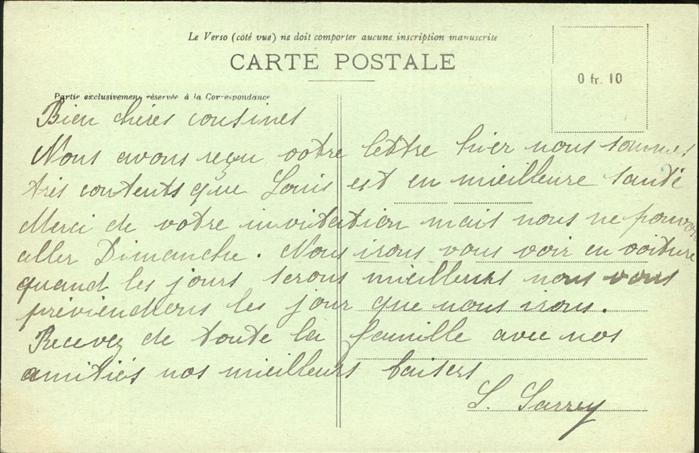 Le Verso (côté vue) ne doit comporter aucune inscription manuscrite
CARTE POSTALE
0 fr. 10
Partie exclusivement réservée à la Correspondance
Bien chères cousines
Nous avons reçu votre lettre hier nous sommes
très contents que Louis est en meilleure santé
Merci de votre invitation mais nous ne pouvons
aller Dimanche. Nous irons vous voir en voiture
quand les jours serons meilleurs nous vous
préviendrons les jour que nous irons.
Recevez de toute la famille avec nos
amitiés nos meilleurs baisers